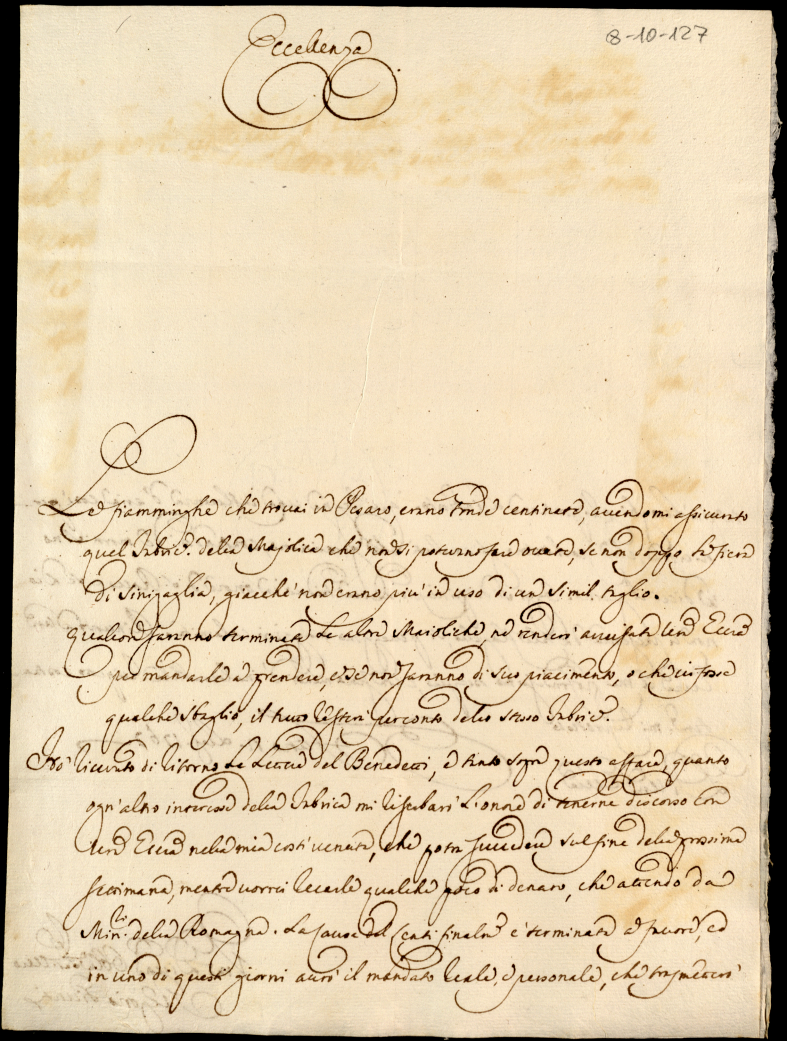 8-10-127
Eccellenza
Le fiamminghe che trovai in Pesaro, erano tonde centinate, avendomi assicurato
quel Fabric.e della Majolica che non si potevano fare ovate, se non doppo la fiera
di Sinigaglia, giacché non erano più in uso di un simil taglio.
Qualora saranno terminate le altre Maioliche, ne renderò avvisata Vra Ecc.a
per mandarle a prendere, e se non saranno di suo piacimento, o che vi fosse
qualche sbaglio, il tutto resterà per conto dello stesso Fabric.e
Ho ricevuto di ritorno le Lettere del Benedetti, e tanto sopra questo affare, quanto
ogn'altro interesse della Fabrica mi riserbarò l'onore di tenerne discorso con
Vra Ecc.a nella mia costì venuta, che potrà succedere sul fine della prossima
settimana, mentre vorrei recarle qualche poco di denaro, che attendo da
Min.ri della Romagna. La causa del Centi finalm.e è terminata a favore, ed
in uno di questi giorni avrò il mandato reale, e personale, che trasmetterò